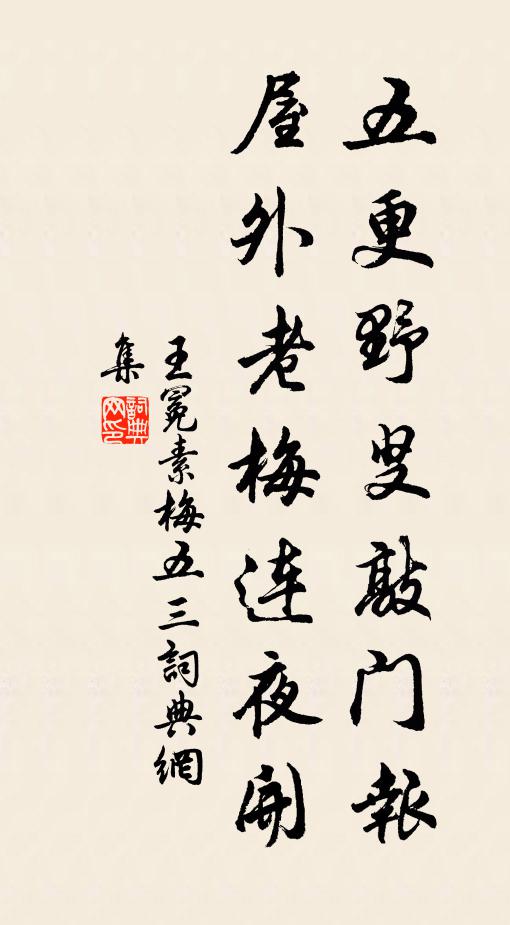 五更野叟敲门報
屋外老梅连夜開
王冕素梅五三詞典網
集
詞典
网印